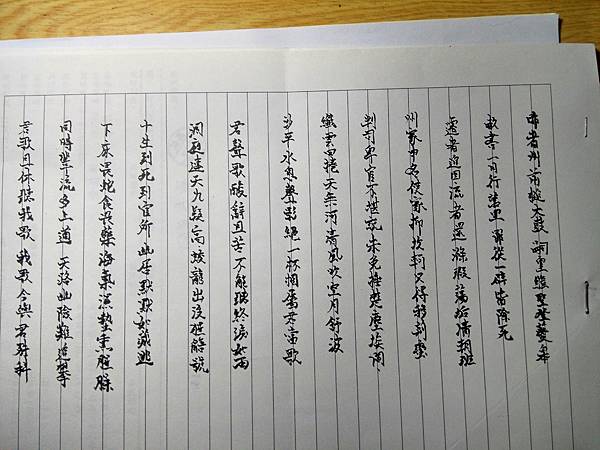 昨者州前捶大鼓 嗣皇繼聖登夔皋
赦書一日行萬里 罪從大辟皆除死
遷者追回流者還 滌瑕蕩垢清朝班
州家申名使家抑 坎軻只得移荆蠻
判司卑官不堪説 未免捶楚塵埃間
纖雲四捲天無河 清風吹空月舒波
沙平水息聲影絶 一杯相屬君當歌
君聲歌酸辭且苦 不能聽終淚如雨
洞庭連天九疑高 蛟龍出没猩鼯號
十生九死到官所 幽居默默如藏逃
下床畏蛇食畏藥 海氣濕蟄熏腥臊
同時輩流多上道 天路幽險難追攀
君歌且休聽我歌 我歌今與君殊科